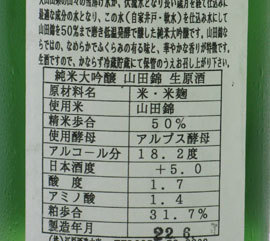 適な成分の水となり、この水(自家井戸・軟水)を仕込水にして山田
錦を50%まで磨き低温発酵で醸した純米大吟醸です。山田錦な
らではの、なめらかでふくらみのある味と、華やかな香りが特徴です。
生酒ですので、かならず冷蔵貯蔵にて保管のうえお召し上がり下さい。
純米大吟醸 山田錦 生原酒
原材料名 米・米麹
使用米 山田錦
精米歩合 50%
使用酵母 アルプス酵母
アルコール分 18.2度
日本酒度 +5.0
酸度 1.7
アミノ酸 1.4
粕歩合 31.7%
製造年月 22.6